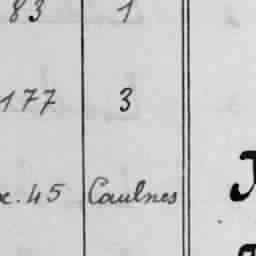 83 1
177 3
x. 45 Caulnes